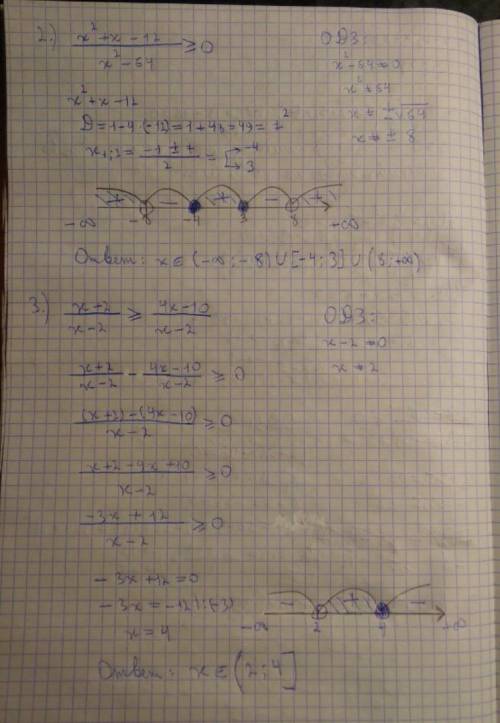 2.) (x²+x-12)/(x²-64) ≥ 0
ОДЗ:
x²-64≠0
x²≠64
x ≠ ±√64
x ≠ ± 8
x²+x-12
D=1-4·(-12)=1+48=49=7²
x₁;₂ = (-1±7)/2 = [-4 3
+ - + - +
-∞ -8 -4 3 8 +∞
Ответ: x∈(-∞;-8)∪[-4;3]∪(8;+∞)
3.) (x+2)/(x-2) ≥ (4x-10)/(x-2)
ОДЗ:
x-2≠0
x≠2
(x+2)/(x-2) - (4x-10)/(x-2) ≥ 0
((x+2)-(4x-10))/(x-2) ≥ 0
(x+2-4x+10)/(x-2) ≥ 0
(-3x+12)/(x-2) ≥ 0
-3x+12=0
-3x=-12|:(-3)
x=4
- + -
-∞ 2 4 +∞
Ответ: x∈(2;4]